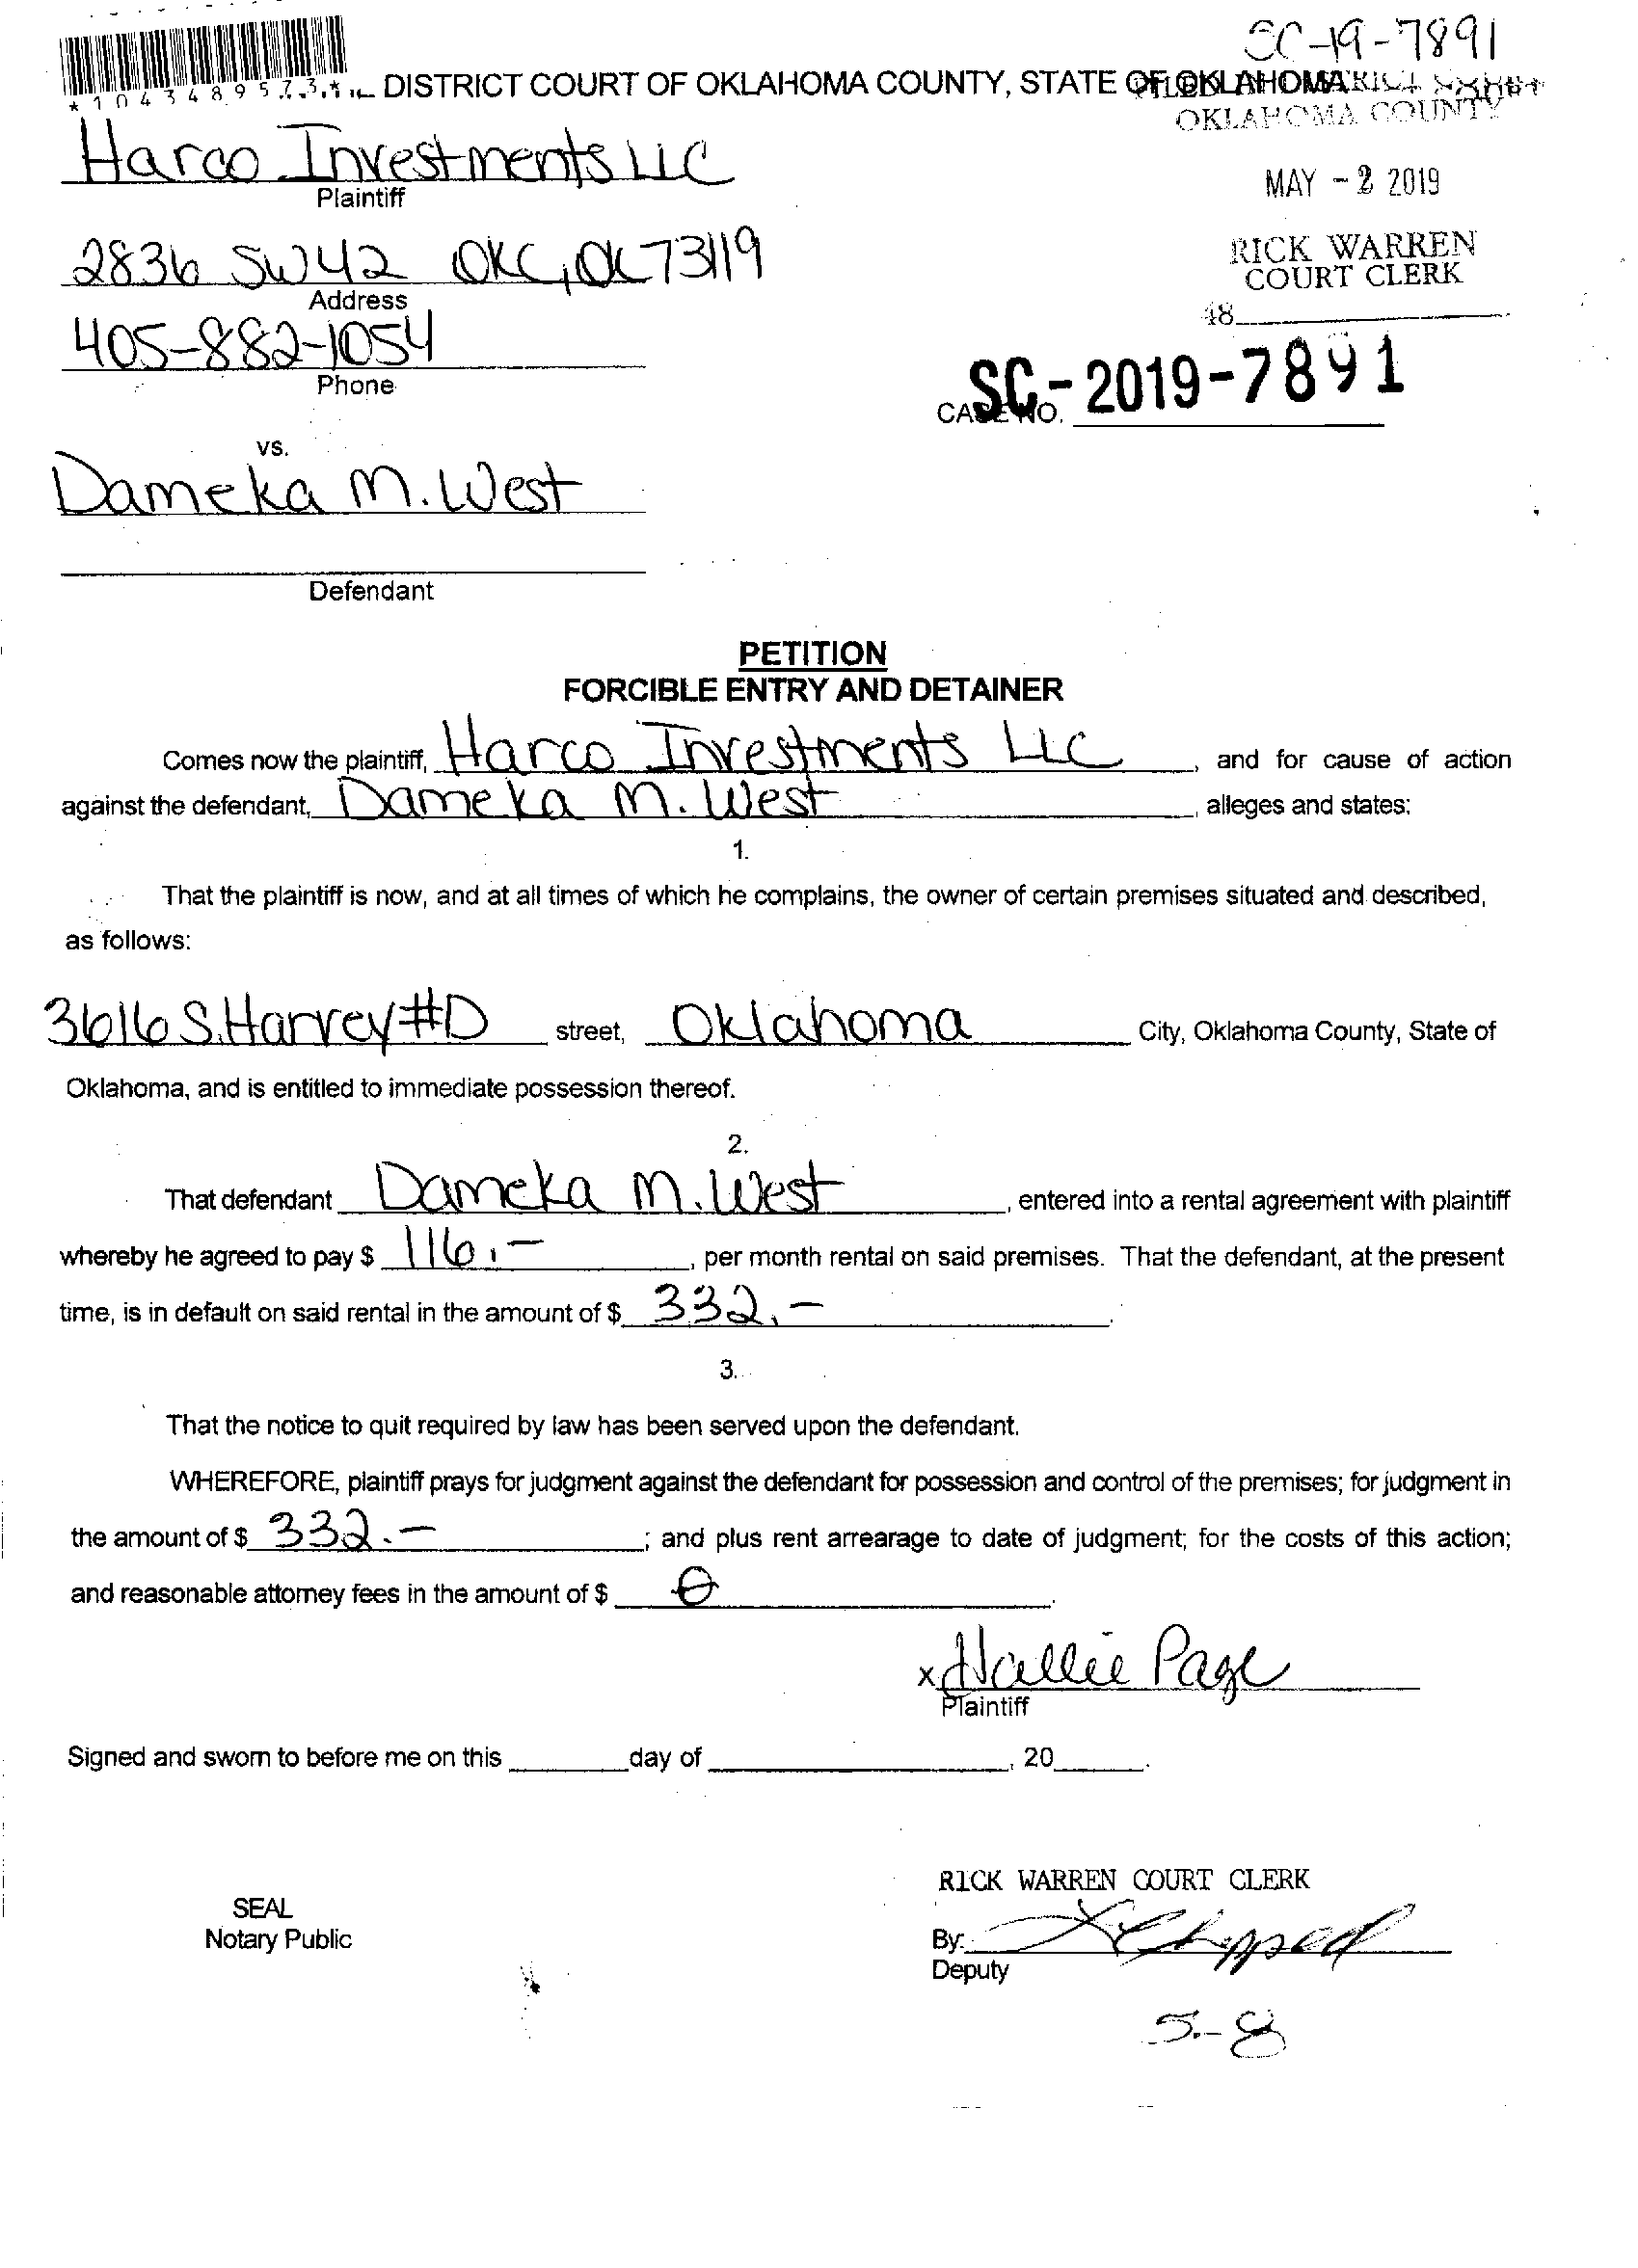 SC-19-7891
*1043489573*
DISTRICT COURT OF OKLAHOMA COUNTY, STATE OF OKLAHOMA
OKLAHOMA COUNTY
Harco Investments LLC
Plaintiff
MAY - 2 2019
2836 SW 42 OKC, OK 73119
Address
RICK WARREN
COURT CLERK
405-882-1054
Phone
48
CASE NO. SC-2019-7891
vs.
Dameka M. West
Defendant
PETITION
FORCIBLE ENTRY AND DETAINER
Comes now the plaintiff, Harco Investments LLC, and for cause of action
against the defendant, Dameka M. West, alleges and states:
1.
That the plaintiff is now, and at all times of which he complains, the owner of certain premises situated and described,
as follows:
3616 S. Harvey #D street, Oklahoma City, Oklahoma County, State of
Oklahoma, and is entitled to immediate possession thereof.
2.
That defendant Dameka M. West, entered into a rental agreement with plaintiff
whereby he agreed to pay $ 116.-, per month rental on said premises. That the defendant, at the present
time, is in default on said rental in the amount of $ 332.-.
3.
That the notice to quit required by law has been served upon the defendant.
WHEREFORE, plaintiff prays for judgment against the defendant for possession and control of the premises; for judgment in
the amount of $ 332.-; and plus rent arrearage to date of judgment; for the costs of this action;
and reasonable attorney fees in the amount of $ 0.
x Hallie Page
Plaintiff
Signed and sworn to before me on this ____ day of ________, 20____.
RICK WARREN COURT CLERK
SEAL
Notary Public
By:
Deputy
5-8